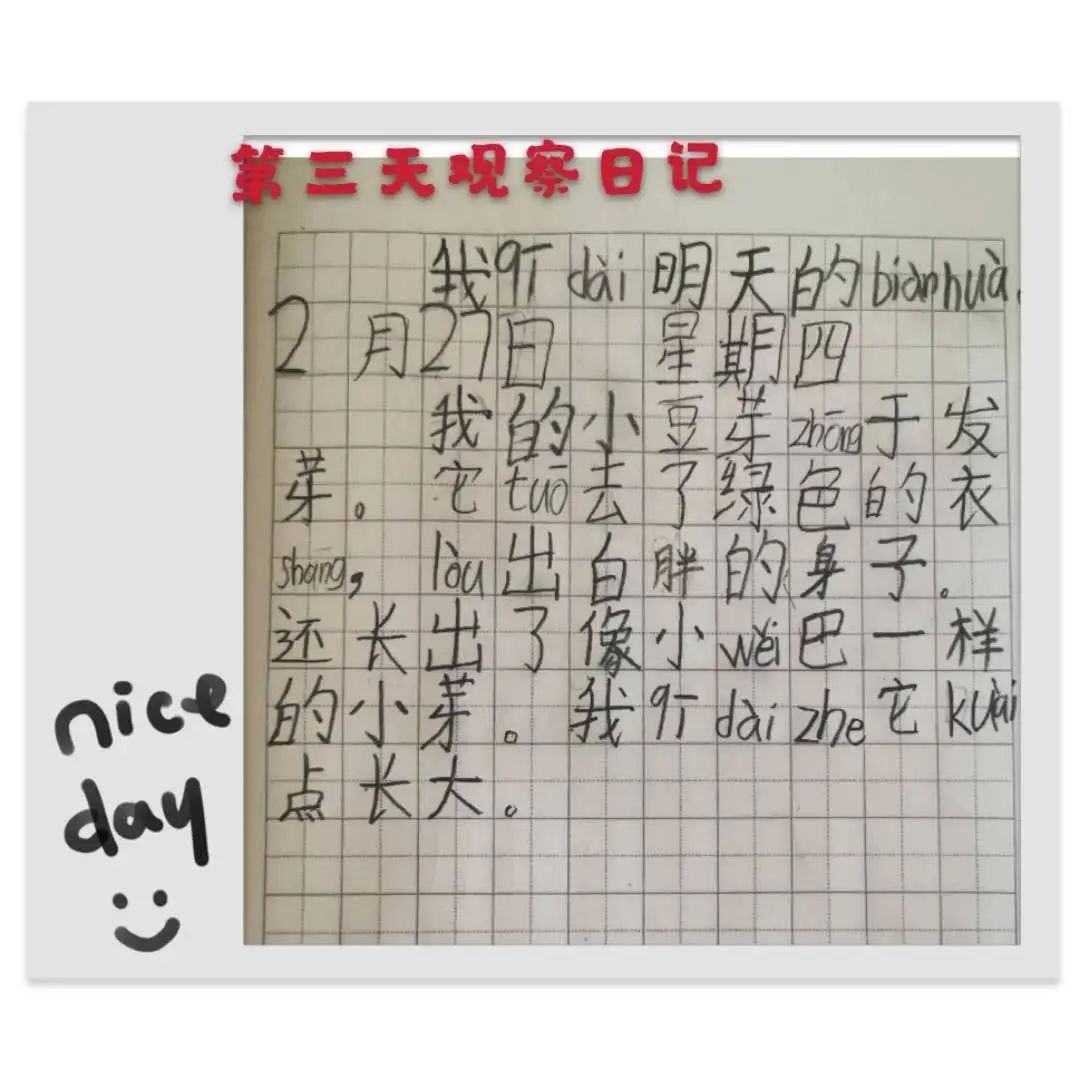 第三天观察日记
我qīdài明天的biànhuà.
2月27日 星期四
我的小豆芽zhōng于发
芽。它tuō去了绿色的衣
shang,lòu出白胖的身子.
还长出了像小wěi巴一样
的小芽。我qīdàizhe它kuài
点长大。
nice
day